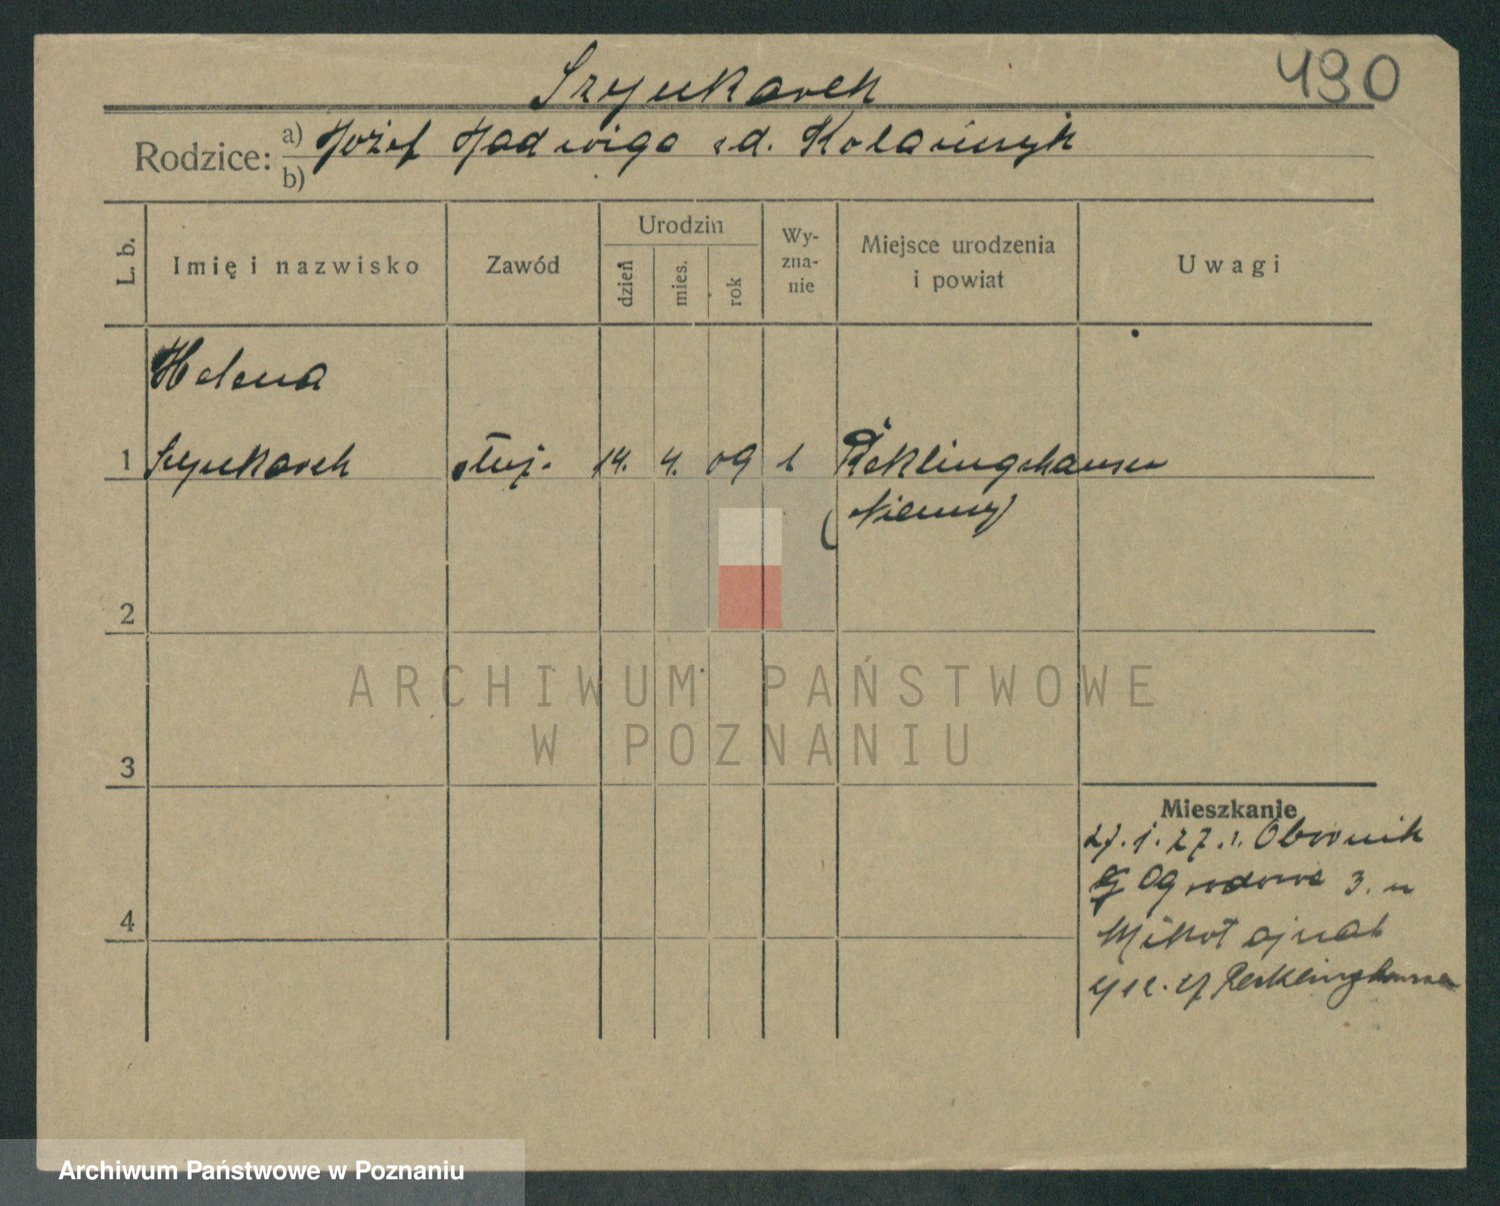 490
Szynkarek
Rodzice: a) Józef Jadwiga z d. Kolańczyk
b)
L. b. Imię i nazwisko Zawód Urodzin dzień mies. rok Wy-zna-nie Miejsce urodzenia i powiat Uwagi
Helena
1 Szynkarek służ. 14. 4. 09 Reklinghausen
(Niemcy)
2
3
4
Mieszkanie
27. 1. 27. Obornik
Ogrodowa 3. u
Mikołajczak
Recklinghausen
ARCHIWUM PAŃSTWOWE
W POZNANIU
Archiwum Państwowe w Poznaniu